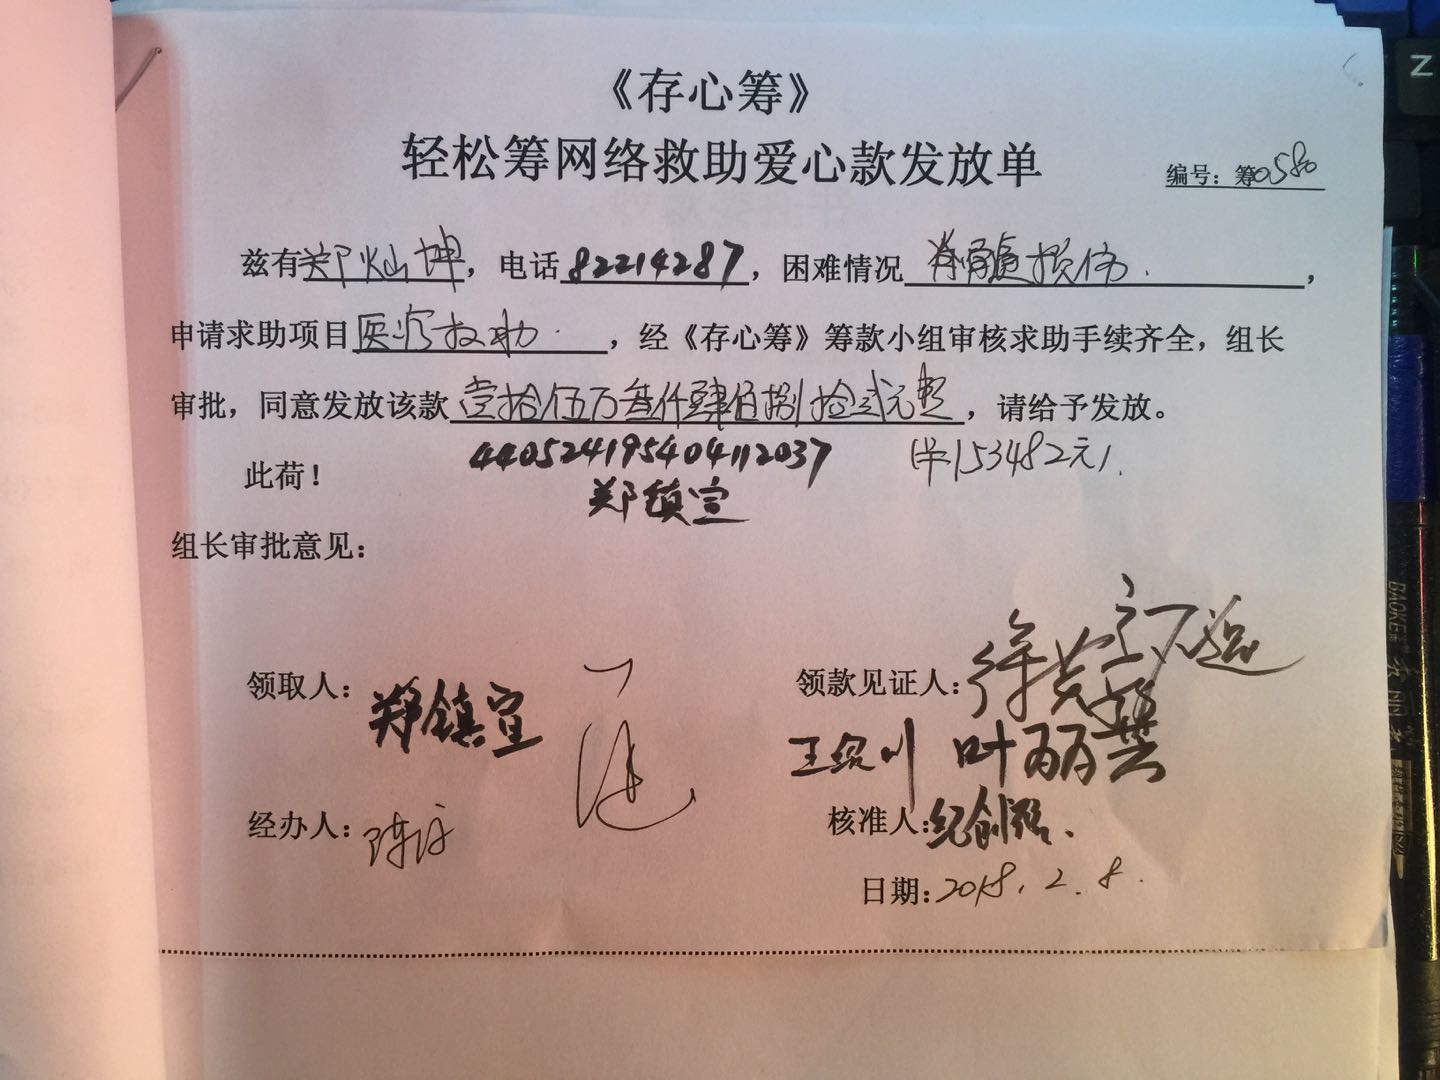 《存心筹》
轻松筹网络救助爱心款发放单
编号：筹0580
兹有郑灿坤，电话82214287，困难情况脊髓损伤．，
申请求助项目医疗救助．，经《存心筹》筹款小组审核求助手续齐全，组长
审批，同意发放该款壹拾伍万叁仟肆佰捌拾贰元整，请给予发放。
此荷！ 440524195404112037 153482元
郑镇宣
组长审批意见：
领取人：郑镇宣 领款见证人：
叶丽
经办人：陈 核准人：纪创
日期：2018.2.8.
Z
BAOKE